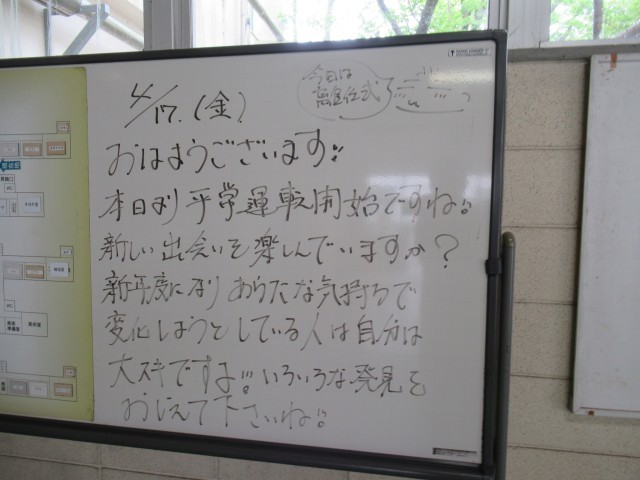 4/17.(金)
今日は
離任式
おはようございます!!
本日より平常運転開始ですね!!
新しい出会いを楽しんでいますか?
新年度になりあらたな気持ちで
変化しようとしている人は自分は
大スキですよ!!いろいろな発見を
おしえて下さいね!!